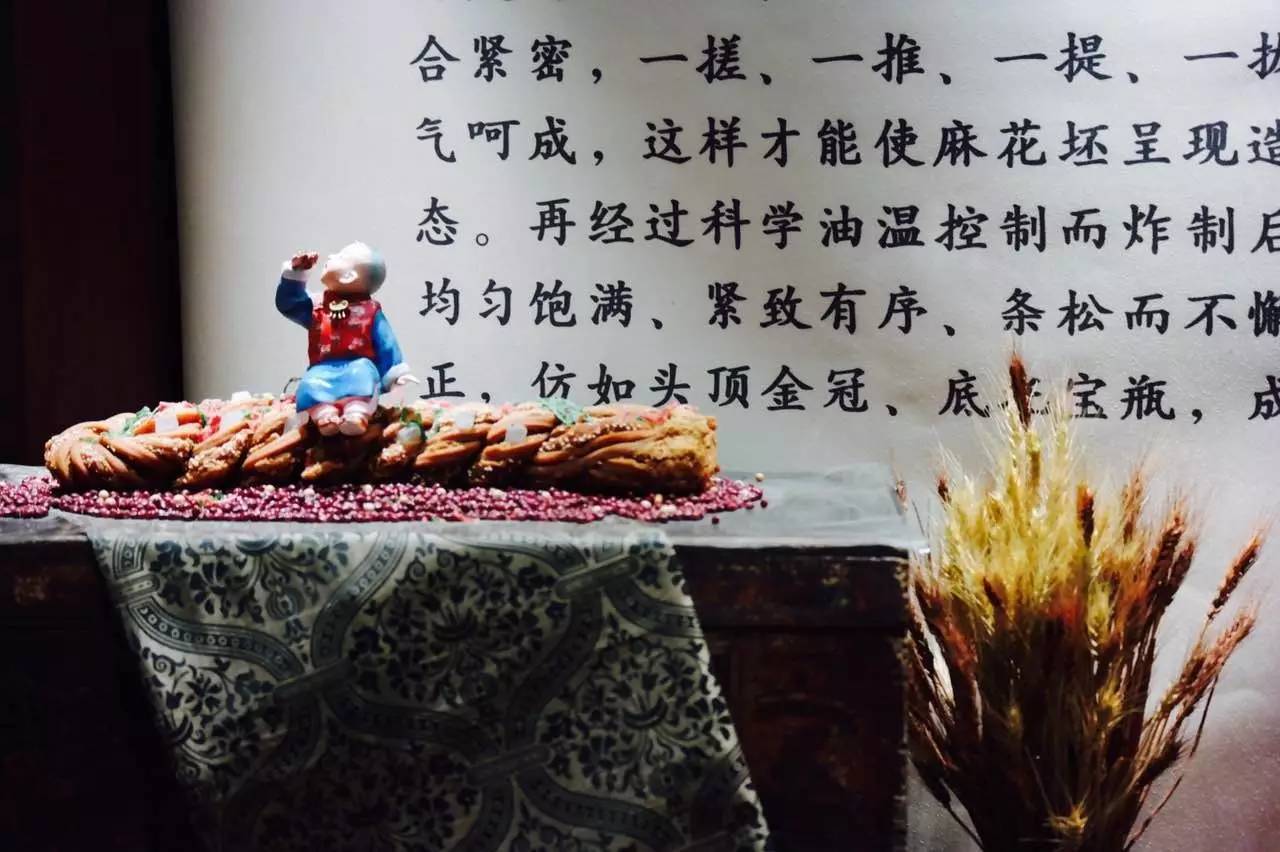 合紧密，一搓、一推、一提、一
气呵成，这样才能使麻花坯呈现造
态。再经过科学油温控制而炸制后
均匀饱满、紧致有序、条松而不懈
正，仿如头顶金冠、底宝瓶，成